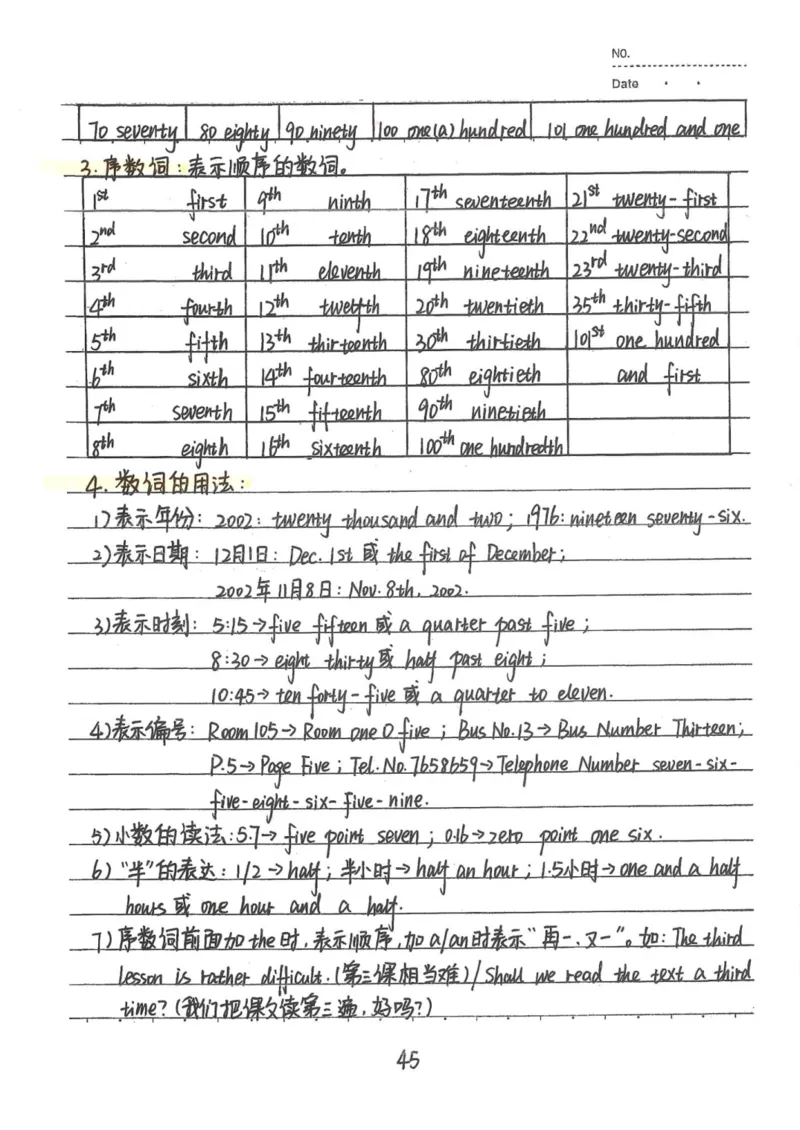 NO.
Date
70 seventy 80 eighty 90 ninety 100 one(a) hundred 101 one hundred and one
3. 序数词：表示顺序的数词。
1st first 9th ninth 17th seventeenth 21st twenty-first
2nd second 10th tenth 18th eighteenth 22nd twenty-second
3rd third 11th eleventh 19th nineteenth 23rd twenty-third
4th fourth 12th twelfth 20th twentieth 35th thirty-fifth
5th fifth 13th thirteenth 30th thirtieth 101st one hundred
6th sixth 14th fourteenth 80th eightieth and first
7th seventh 15th fifteenth 90th ninetieth
8th eighth 16th sixteenth 100th one hundredth
4. 数词的用法：
1)表示年份：2002：twenty thousand and two；1976：nineteen seventy-six.
2)表示日期：12月1日：Dec. 1st 或 the first of December；
2002年11月8日：Nov. 8th, 2002.
3)表示时刻：5:15→five fifteen 或 a quarter past five；
8:30→eight thirty或 half past eight；
10:45→ten forty-five 或 a quarter to eleven.
4)表示编号：Room 105→Room one O five；Bus No.13→Bus Number Thirteen；
P.5→Page Five；Tel. No. 7658659→Telephone Number seven-six-
five-eight-six-five-nine.
5)小数的读法：5.7→five point seven；0.16→zero point one six.
6)“半”的表达：1/2→half；半小时→half an hour；1.5小时→one and a half
hours 或 one hour and a half.
7)序数词前面加the时，表示顺序，加a/an时表示“再一，又一”。如：The third
lesson is rather difficult.(第三课相当难)/Shall we read the text a third
time?(我们把课文读第三遍，好吗？)
45